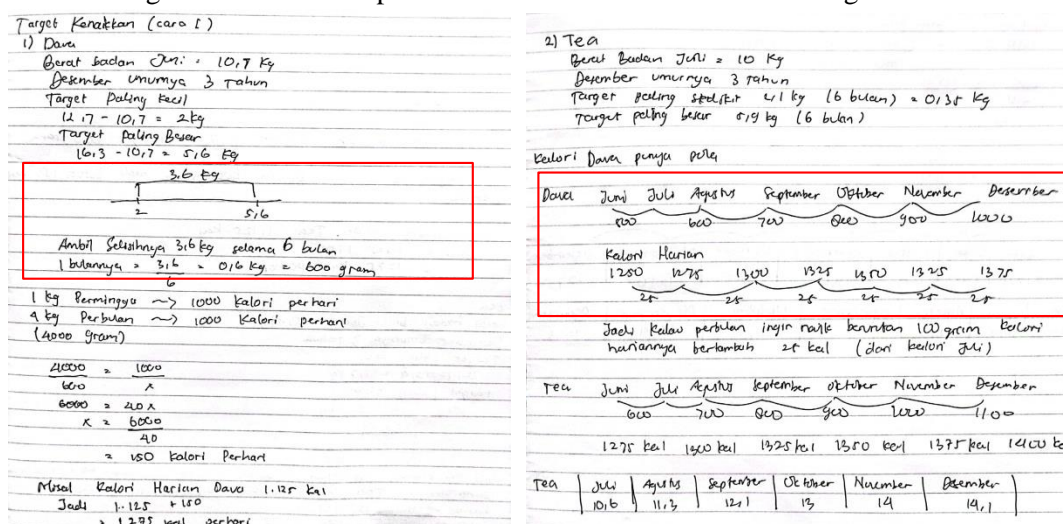 Target Kenaikan (cara 1)
1) Dava
Berat badan Juni = 10,7 Kg
Desember umurnya 3 Tahun
Target Paling Kecil
12,7 - 10,7 = 2kg
Target Paling Besar
16,3 - 10,7 = 5,6 kg
3,6 kg
2 5,6
Ambil Selisihnya 3,6 kg selama 6 bulan
1 bulannya = 3,6/6 = 0,6 kg = 600 gram
1 kg Perminggu ~> 1000 kalori perhari
4 kg Perbulan ~> 1000 kalori perhari
(4000 gram)
4000/600 = 1000/x
6000 = 40x
x = 6000/40
= 150 kalori Perhari
Misal Kalori Harian Dava 1.125 kal
Jadi 1.125 + 150
= 1.275 kal perhari
2) Tea
Berat Badan Juni = 10 kg
Desember umurnya 3 tahun
Target paling sedikit 4,1 kg (6 bulan) = 0,35 kg
Target paling besar 5,9 kg (6 bulan)
Kalori Dava punya pola
Dava Juni Juli Agustus September Oktober November Desember
500 600 700 800 900 1000
Kalori Harian
1250 1275 1300 1325 1350 1325 1375
25 25 25 25 25 25
Jadi kalau perbulan ingin naik berurutan 100 gram kalori
hariannya bertambah 25 kal (dari kalori Juli)
Tea Juni Juli Agustus September Oktober November Desember
600 700 800 900 1000 1100
1275 kal 1300 kal 1325 kal 1350 kal 1375 kal 1400 k
Tea Juli Agustus September Oktober November Desember
10,6 11,3 12,1 13 14 14,1